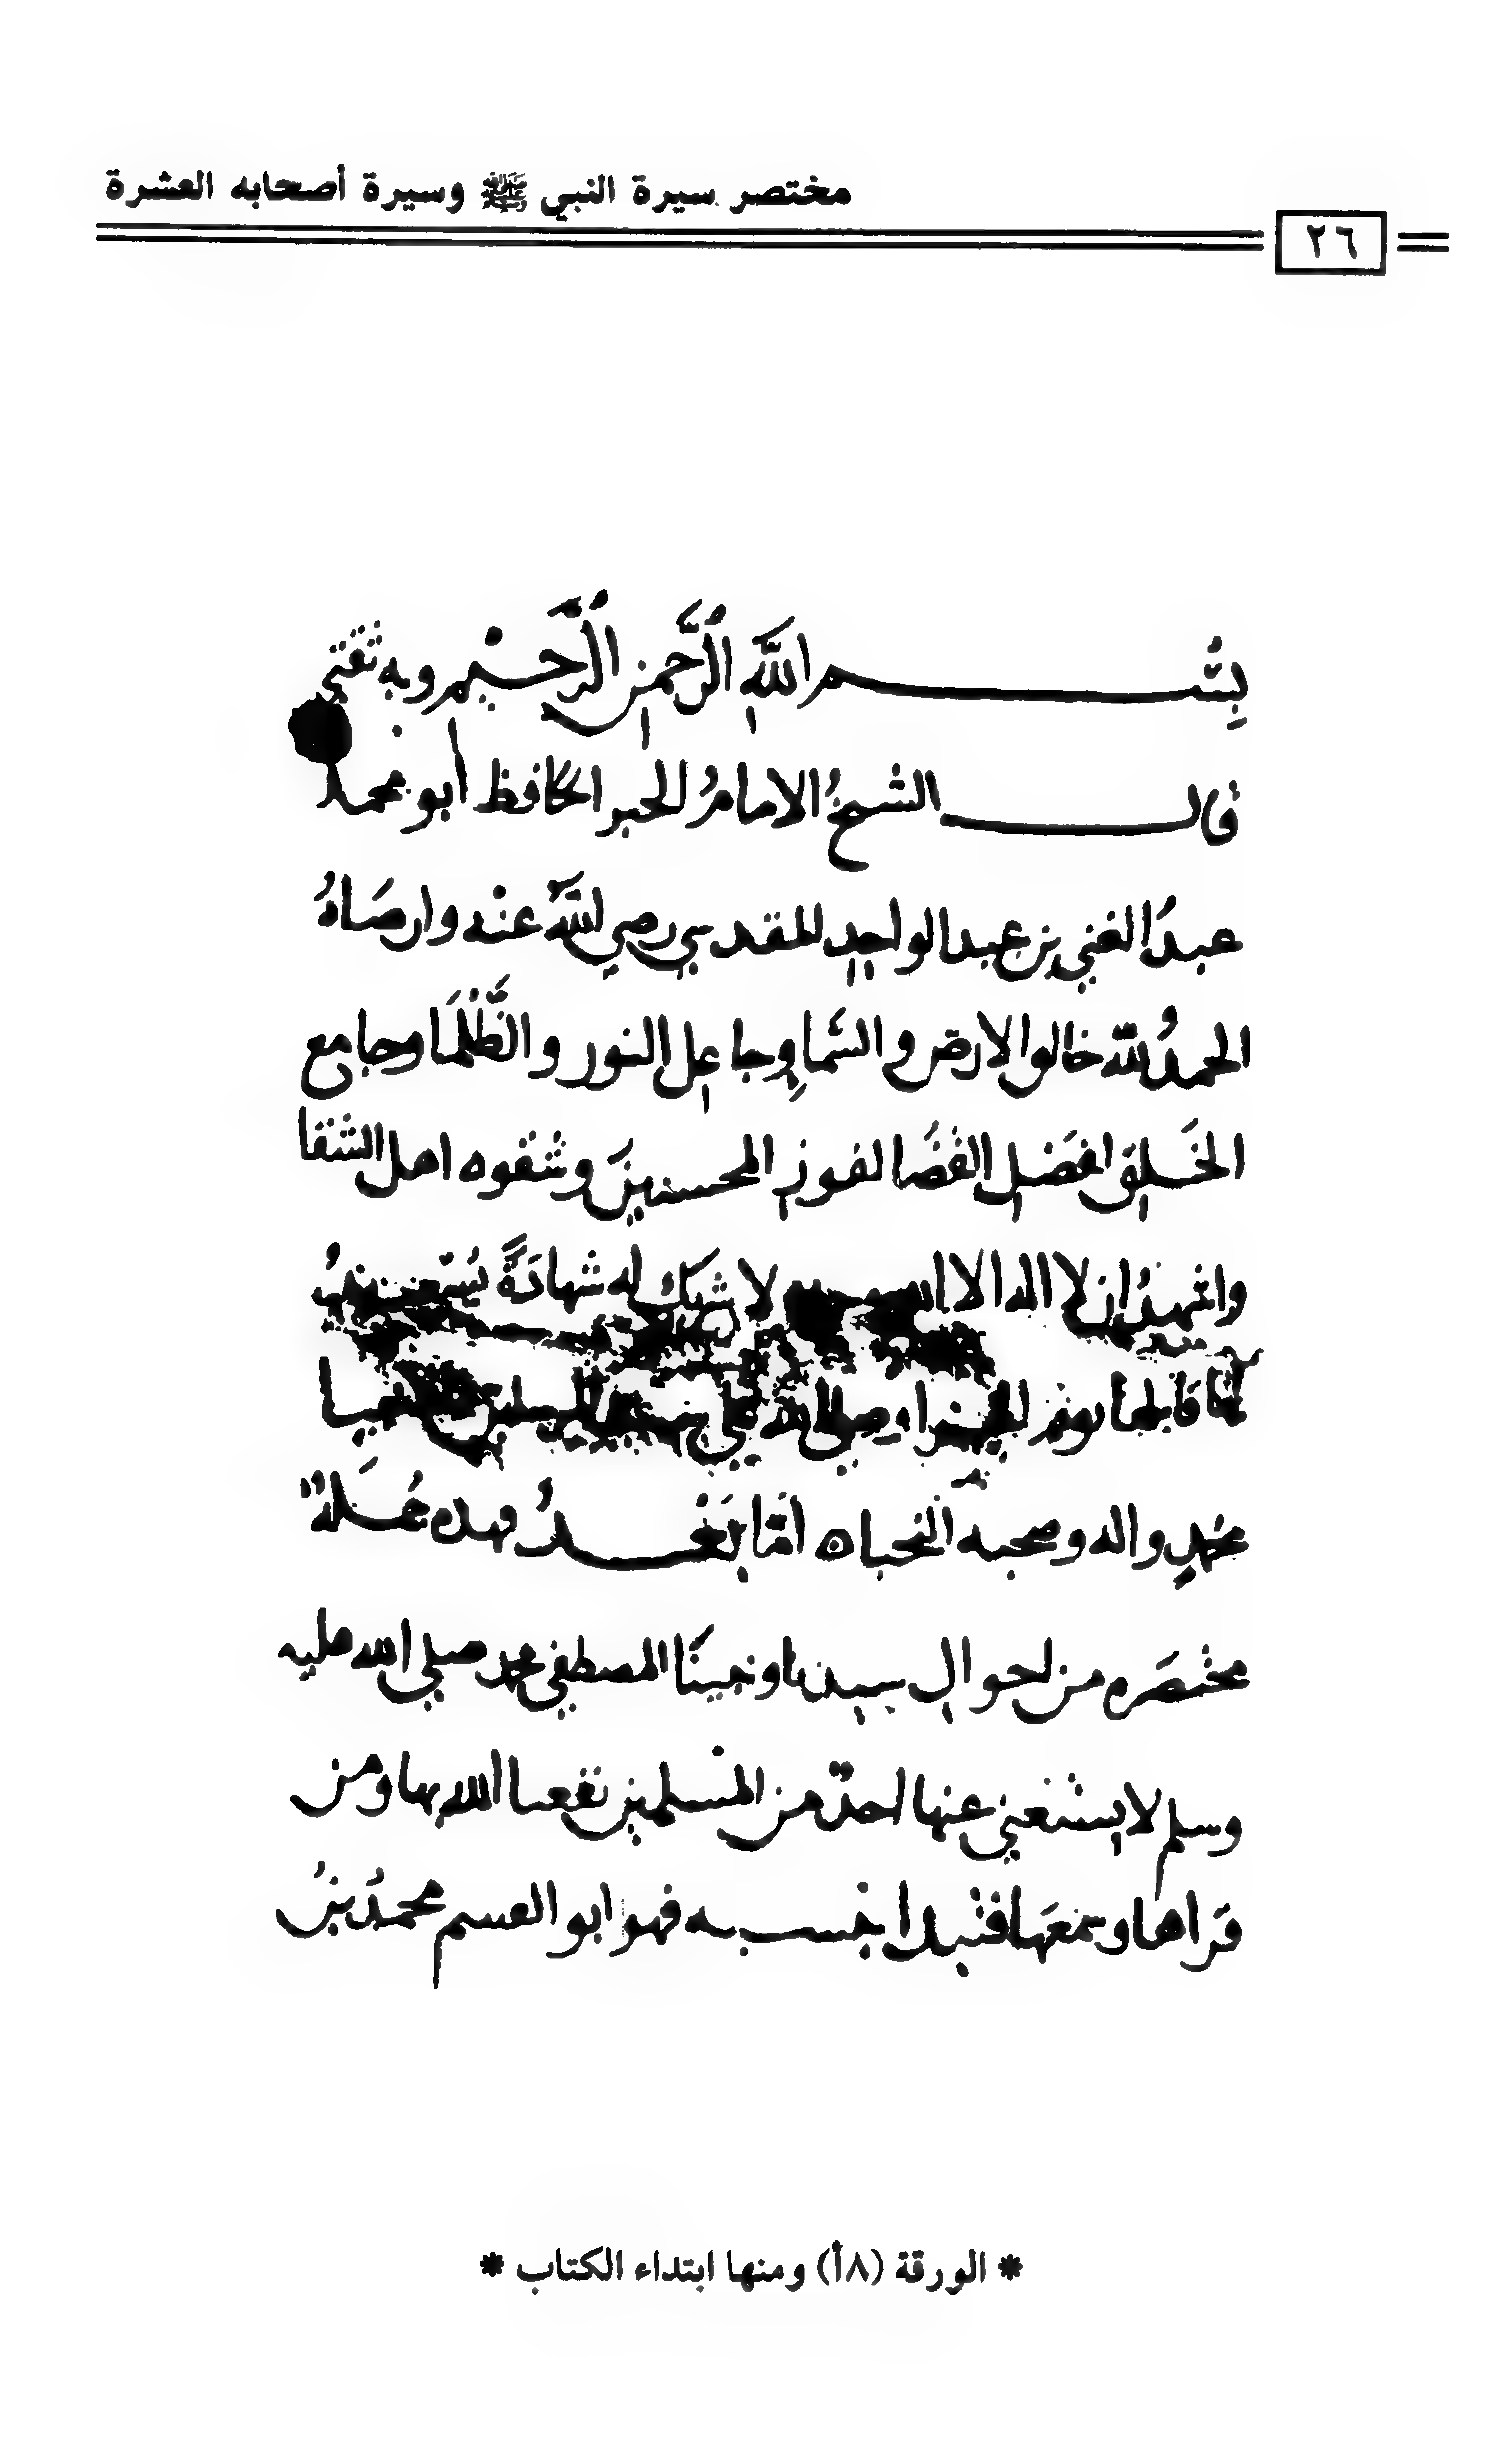 مختصر سيرة النبي ﷺ وسيرة أصحابه العشرة
٢٦
بِسْمِ اللَّهِ الرَّحْمنِ الرَّحِيْمِ وبه ثقتي
قال الشيخُ الامامُ الحبر الحافظ أبو محمد
عبدُ الغني بن عبد الواحدِ المقدسي رضي اللَّه عنْه وارضاهُ
الحمدُ لله خالق الارض والسَّماءِ وجاعِل النور والظُّلْمَا وجامع
الخَلقِ لفصْلِ القَضَا لفوزِ المحسنينَ وشقوه اهل الشقا
واشهدُ ان لا اله الا الله لا شريك له شهادَةً
محمدٍ واله وصحبه النجباه امَّا بَعْدُ فهذه جُمَلةٌ
مختصَره من احوالِ سيدنا ونبينَا المصطفى محمد صلى الله عليه
وسلم لا يستغني عنها احدٌ من المسلمين نفعنا الله بها ومن
قراها وسمعَها فنبدا بنسبه فهو ابو القسم محمدُ بنُ
* الورقة (٨أ) ومنها ابتداء الكتاب *